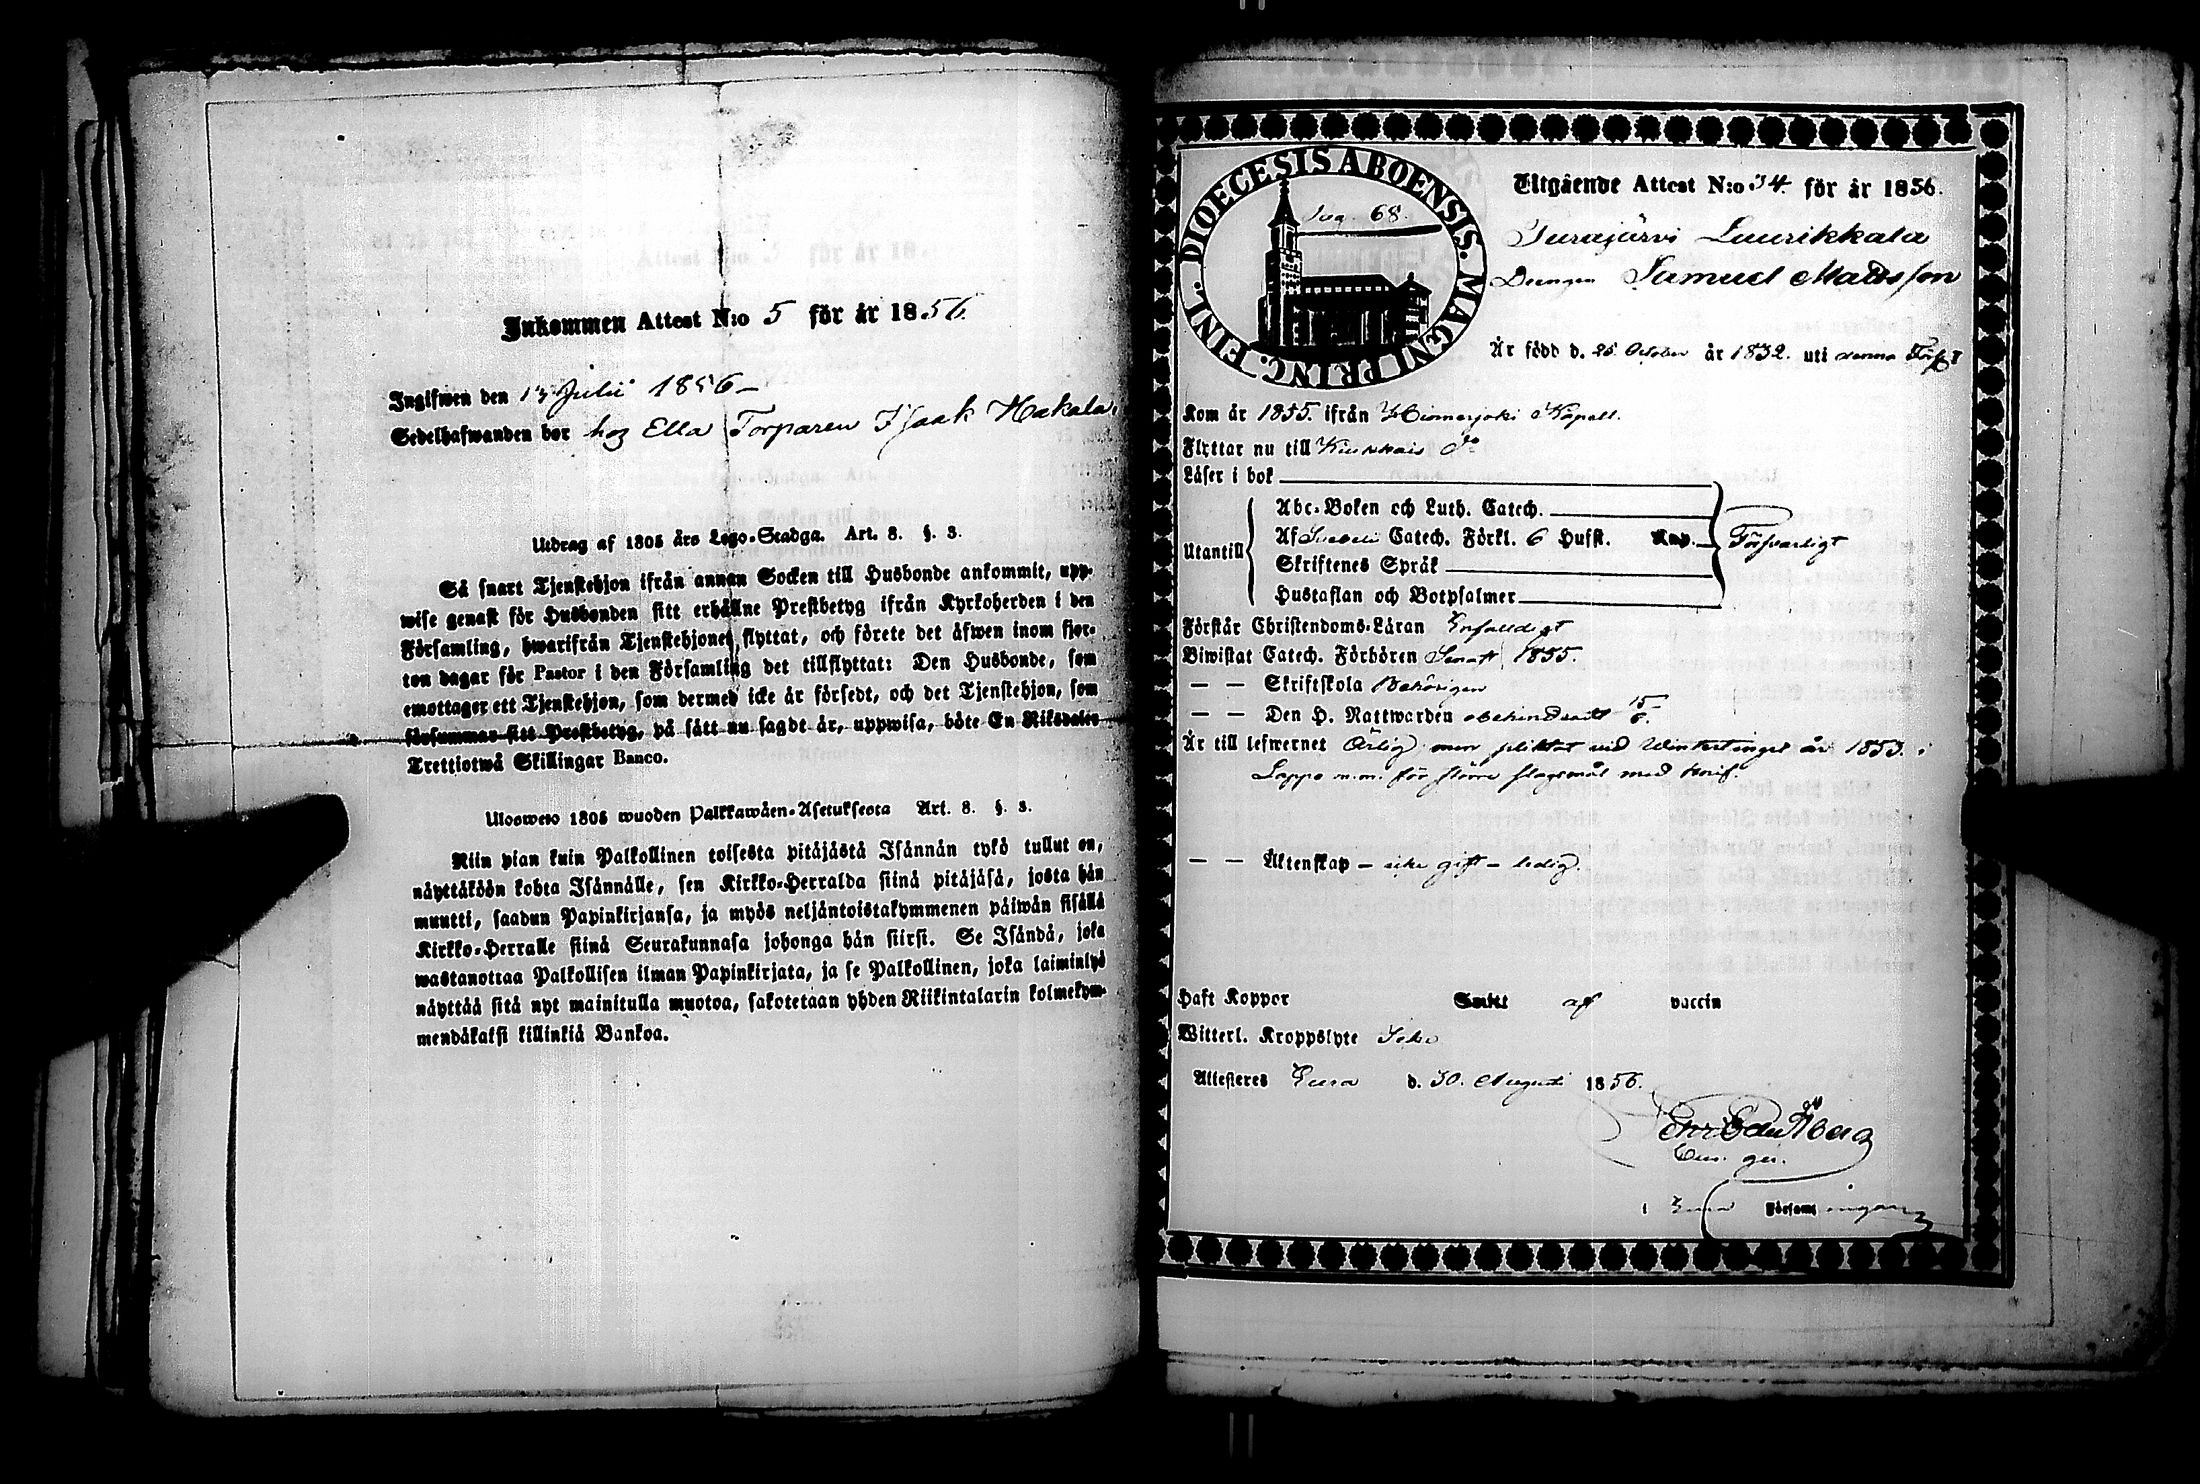 Inkommen Attest N:o 5 för år 1856.
Ingifwen den 13 Julii 1856 –
Sedelhafwanden bor hos Ella Torparen Isaak Hakala.
Utdrag af 1805 års Lego-Stadga. Art. 8. §. 3.
Så snart Tjenstehjon ifrån annan Socken till Husbonde ankommit, upp-
wise genast för Husbonden sitt erhållne Prestbetyg ifrån Kyrkoherden i den
Församling, hwarifrån Tjenstehjonet flyttat, och förete det äfwen inom fjor-
ton dagar för Pastor i den Församling det tillflyttat: Den Husbonde, som
emottager ett Tjenstehjon, som dermed icke är försedt, och det Tjenstehjon, som
försummar sitt Prestbetyg, på sätt nu sagdt är, uppwisa, böte En Riksdaler
Trettiotwå Skillingar Banco.
Uloswero 1805 wuoden Palkkawäen-Asetuksesta Art. 8. §. 3.
Niin pian kuin Palkollinen toisesta pitäjästä Isännän tykö tullut on,
näyttäköön kohta Isännälle, sen Kirkko-Herralda siinä pitäjäsä, josta hän
muutti, saadun Papinkirjansa, ja myös neljäntoistakymmenen päiwän sisällä
Kirkko-Herralle siinä Seurakunnasa johonga hän siirsi. Se Isändä, joka
wastanottaa Palkollisen ilman Papinkirjata, ja se Palkollinen, joka laiminlyö
näyttää sitä nyt mainitulla muotoa, sakotetaan yhden Riikintalarin kolmekym-
mendäkaksi killinkiä Bankoa.
DIOECESIS ABOENSIS. MAGNI PRINC. FINL.
68.
Utgående Attest N:o 34. för år 1856.
Turajärvi Laurikkala
Drengen Samuel Mattsson
Är född d. 25. October år 1832. uti denna
Kom år 1855. ifrån Hinnerjoki Kapell.
Flyttar nu till Kiukkais do
Läser i bok
Utantill
Abc-Boken och Luth. Catech.
Af Svebelii Catech. Förkl. 6 Hufst. Kap.
Försvarligt
Skriftenes Språk
Hustaflan och Botpsalmer
Förstår Christendoms-Läran Enfaldigt
Biwistat Catech. Förhören Senast 1855.
— — Skriftskola Behörigen
— — Den H. Nattwarden obehindradt 15/6.
Är till lefwernet Ärlig, men pliktat vid Wintertinget år 1853. i
Lappo m.m. för större slagsmål med knif.
— — Äktenskap – icke gift – ledig.
Haft Koppor Smitt af vaccin
Witterl. Kroppslyte Icke
Attesteres Eura d. 30. Augusti 1856.
i Eura Församlingar